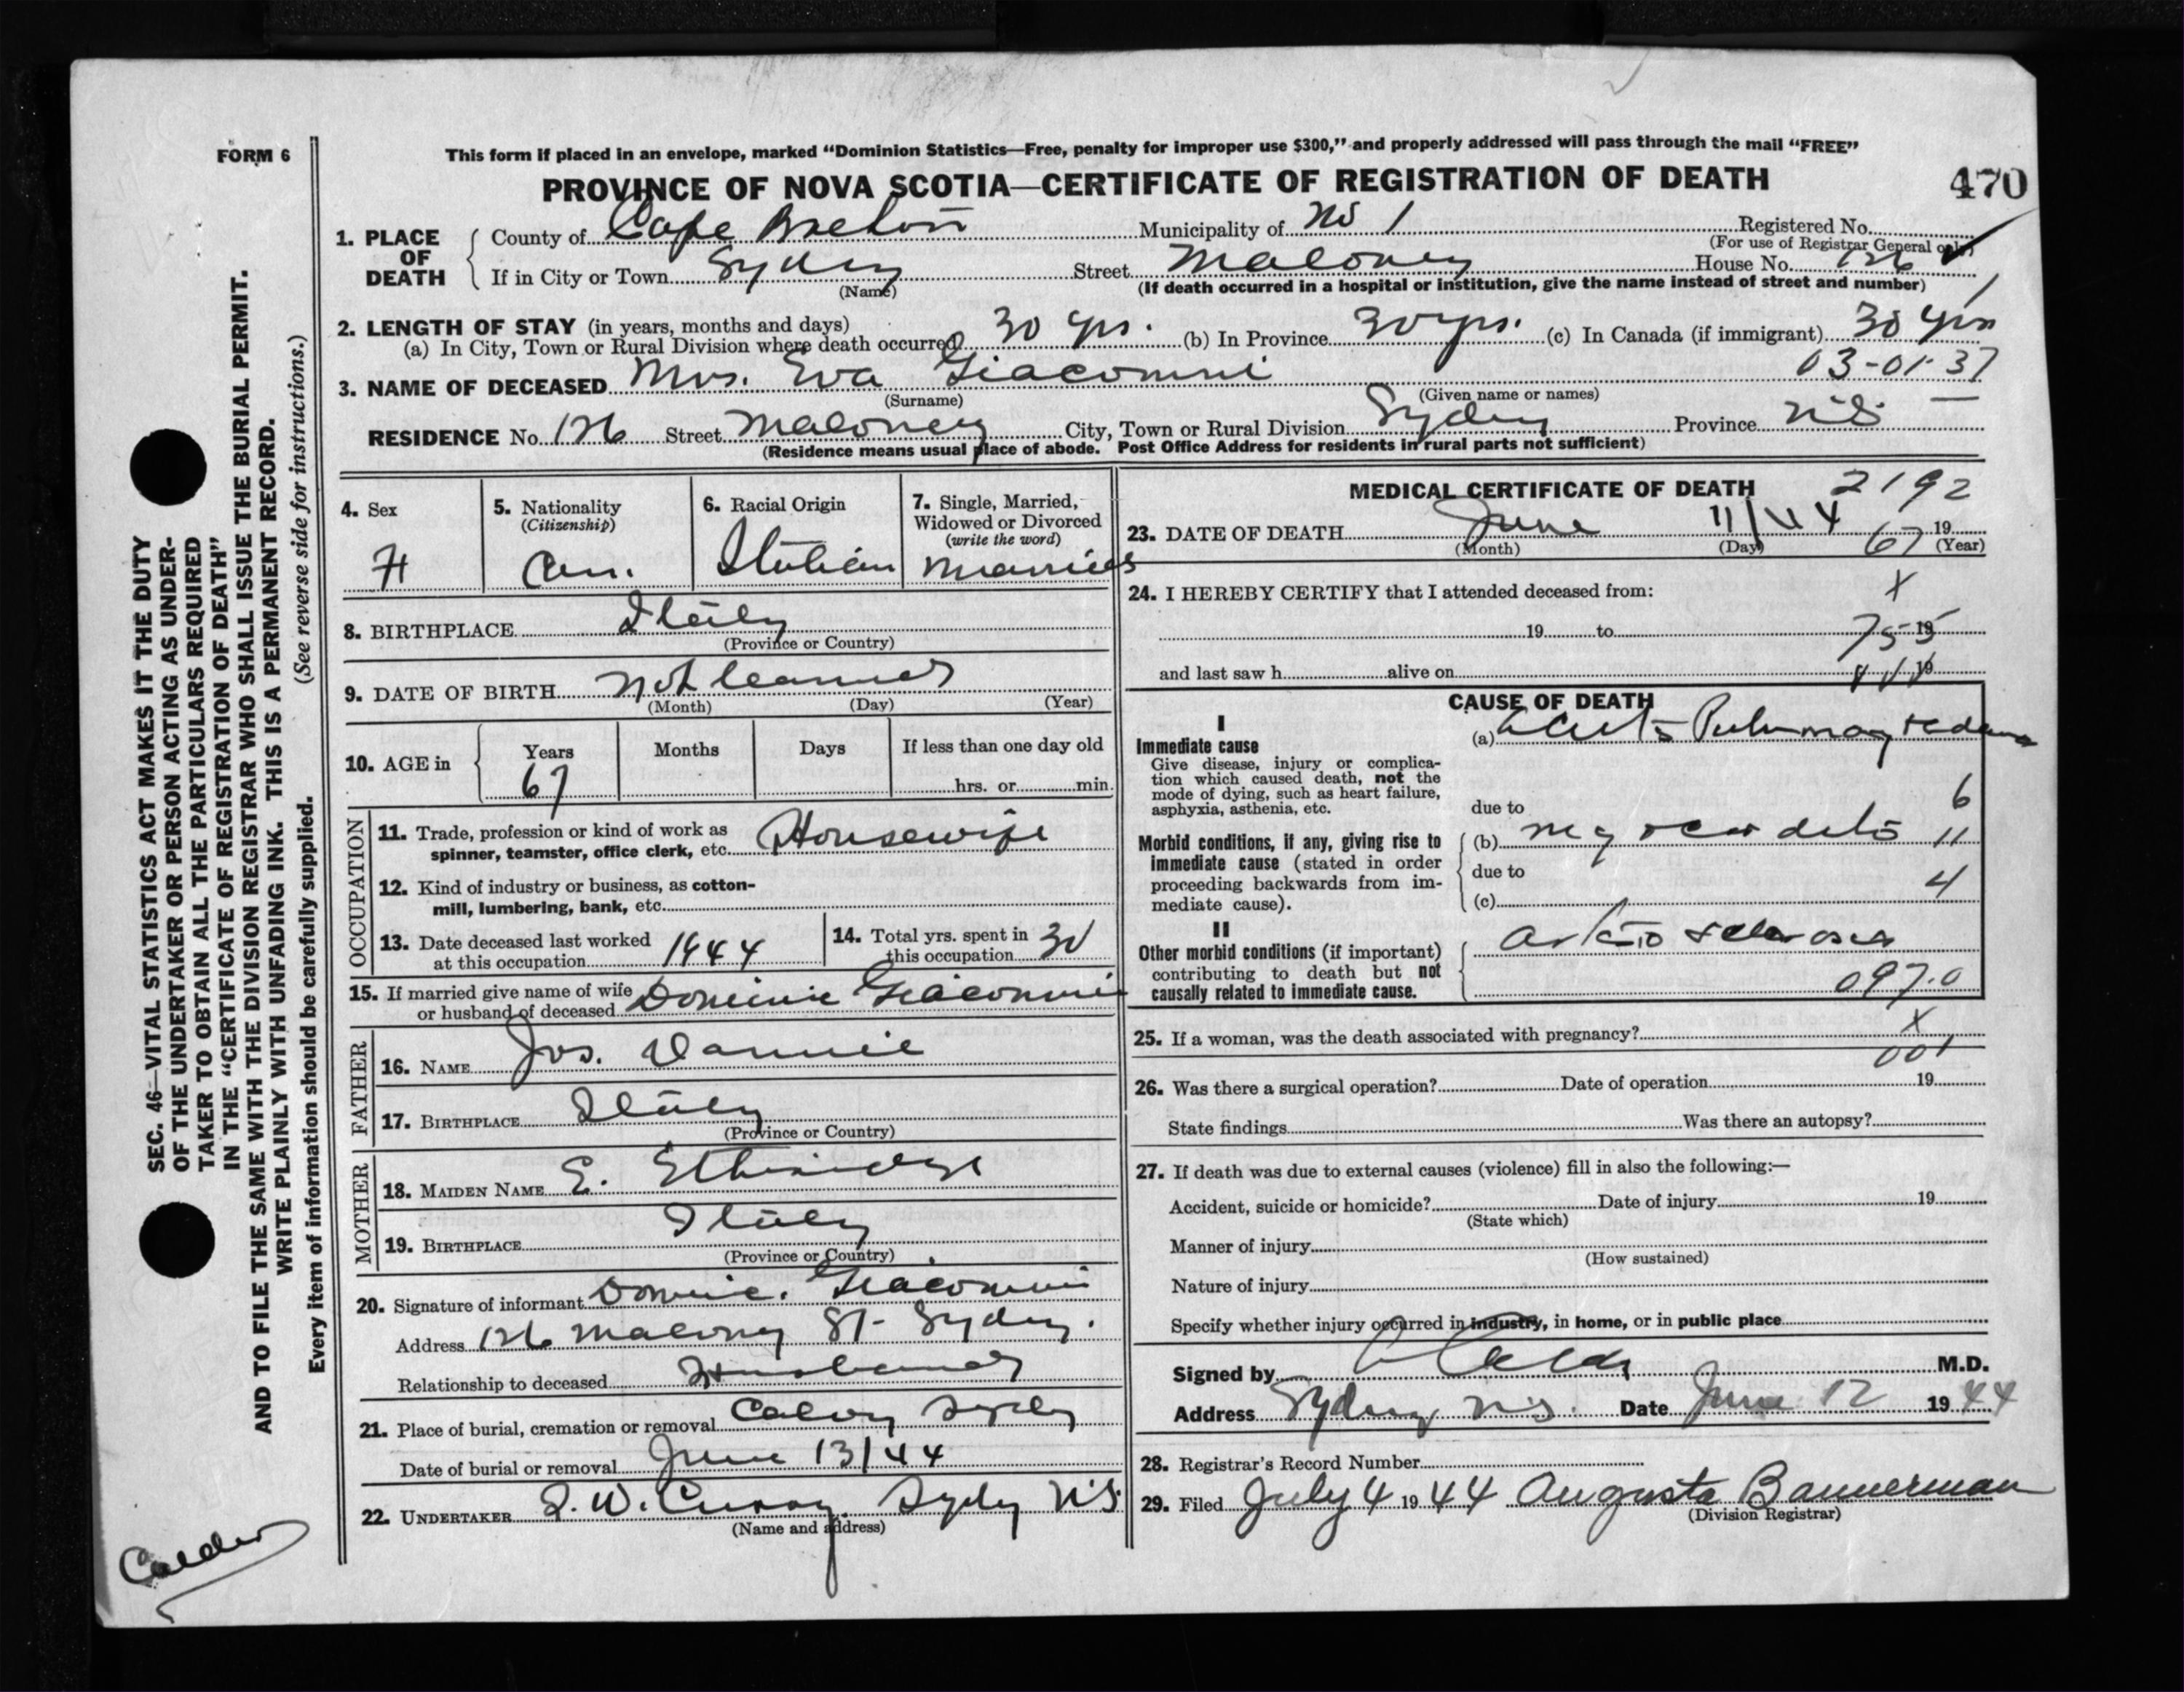 FORM 6
This form if placed in an envelope, marked "Dominion Statistics—Free, penalty for improper use $300," and properly addressed will pass through the mail "FREE"
PROVINCE OF NOVA SCOTIA—CERTIFICATE OF REGISTRATION OF DEATH
470
1. PLACE OF DEATH
County of Cape Breton Municipality of No 1 Registered No.
(For use of Registrar General only)
If in City or Town Sydney Street Maloney House No. 126
(Name) (If death occurred in a hospital or institution, give the name instead of street and number)
2. LENGTH OF STAY (in years, months and days)
(a) In City, Town or Rural Division where death occurred 30 yrs. (b) In Province 30 yrs. (c) In Canada (if immigrant) 30 yrs
3. NAME OF DECEASED Mrs. Eva Giacomni 03-01-37
(Surname) (Given name or names)
RESIDENCE No. 126 Street Maloney City, Town or Rural Division Sydney Province N.S.
(Residence means usual place of abode. Post Office Address for residents in rural parts not sufficient)
4. Sex
F
5. Nationality
(Citizenship)
Can.
6. Racial Origin
Italian
7. Single, Married, Widowed or Divorced
(write the word)
Married
8. BIRTHPLACE Italy
(Province or Country)
9. DATE OF BIRTH not learned
(Month) (Day) (Year)
10. AGE in
Years Months Days If less than one day old
67 hrs. or min.
OCCUPATION
11. Trade, profession or kind of work as
spinner, teamster, office clerk, etc. Housewife
12. Kind of industry or business, as cotton-
mill, lumbering, bank, etc.
13. Date deceased last worked
at this occupation 1944
14. Total yrs. spent in
this occupation 30
15. If married give name of wife
or husband of deceased Dominic Giacomni
FATHER
16. NAME Jos.
17. BIRTHPLACE Italy
(Province or Country)
MOTHER
18. MAIDEN NAME E.
19. BIRTHPLACE Italy
(Province or Country)
20. Signature of informant Dominic. Giacomni
Address 126 Maloney St- Sydney.
Relationship to deceased Husband
21. Place of burial, cremation or removal Calvary Sydney
Date of burial or removal June 13/44
22. UNDERTAKER Curry Sydney N.S.
(Name and address)
MEDICAL CERTIFICATE OF DEATH 2192
23. DATE OF DEATH June 11/44 19
(Month) (Day) 67 (Year)
24. I HEREBY CERTIFY that I attended deceased from: X
19 to 19
755
and last saw h alive on 19
CAUSE OF DEATH
I
Immediate cause
Give disease, injury or complica-
tion which caused death, not the
mode of dying, such as heart failure,
asphyxia, asthenia, etc.
(a) Acute Pulmonary edema
due to 6
Morbid conditions, if any, giving rise to
immediate cause (stated in order
proceeding backwards from im-
mediate cause).
(b) myocarditis 11
due to 4
(c)
II
Other morbid conditions (if important)
contributing to death but not
causally related to immediate cause.
arterio sclerosis
097.0
25. If a woman, was the death associated with pregnancy? X
001
26. Was there a surgical operation? Date of operation 19
State findings Was there an autopsy?
27. If death was due to external causes (violence) fill in also the following:—
Accident, suicide or homicide? Date of injury 19
(State which)
Manner of injury
(How sustained)
Nature of injury
Specify whether injury occurred in industry, in home, or in public place
Signed by Calder M.D.
Address Sydney N.S. Date June 12 1944
28. Registrar's Record Number
29. Filed July 4 1944 Augusta Bannerman
(Division Registrar)
SEC. 46—VITAL STATISTICS ACT MAKES IT THE DUTY
OF THE UNDERTAKER OR PERSON ACTING AS UNDER-
TAKER TO OBTAIN ALL THE PARTICULARS REQUIRED
IN THE "CERTIFICATE OF REGISTRATION OF DEATH"
AND TO FILE THE SAME WITH THE DIVISION REGISTRAR WHO SHALL ISSUE THE BURIAL PERMIT.
WRITE PLAINLY WITH UNFADING INK. THIS IS A PERMANENT RECORD.
(See reverse side for instructions.)
Every item of information should be carefully supplied.
Calder